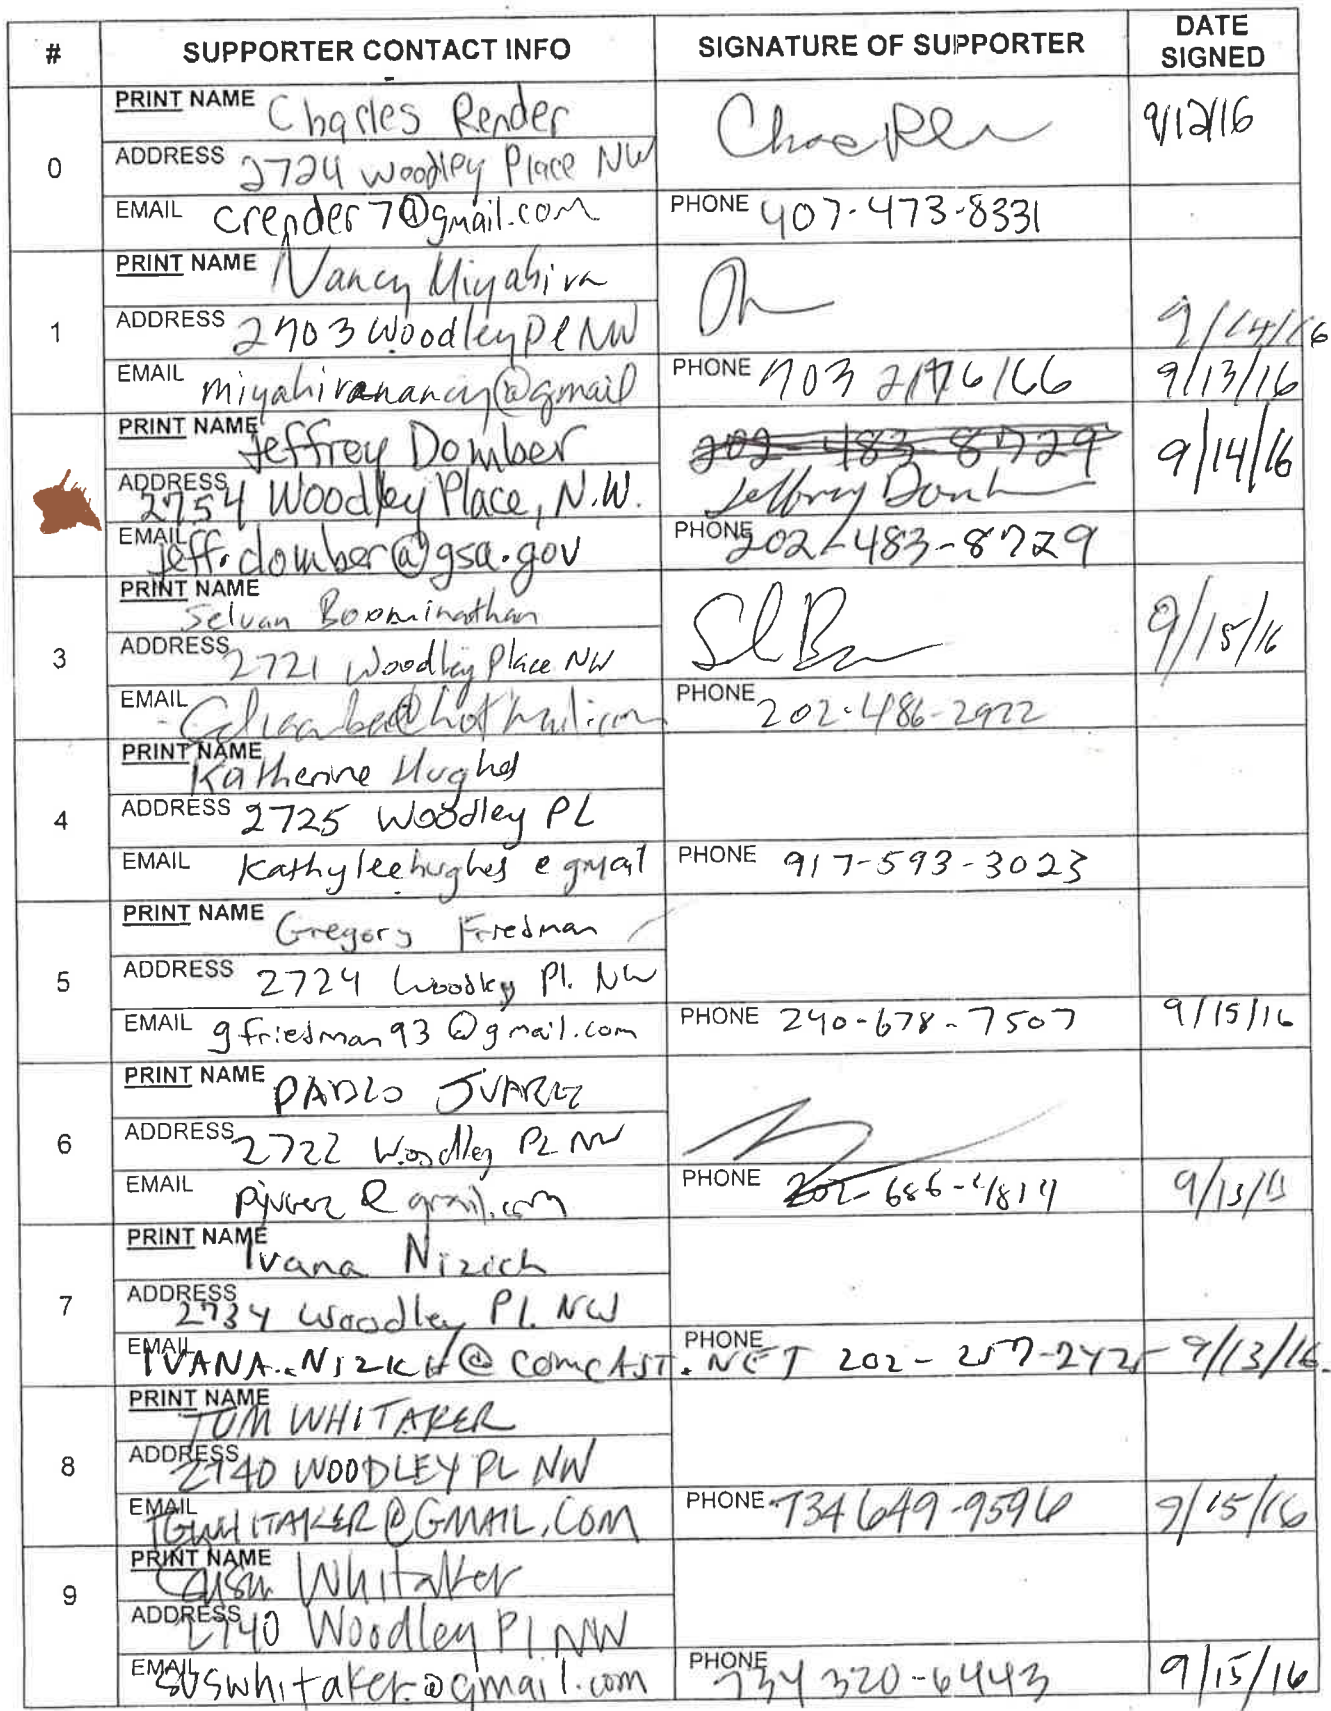 # SUPPORTER CONTACT INFO SIGNATURE OF SUPPORTER DATE SIGNED
0
PRINT NAME Charles Render
9/12/16
ADDRESS 2724 Woodley Place NW
EMAIL crender7@gmail.com PHONE 407-473-8331
1
PRINT NAME Nancy Miyahira
ADDRESS 2703 Woodley Pl NW
9/14/16
EMAIL miyahiranancy@gmail PHONE 703 2176166 9/13/16
PRINT NAME Jeffrey Domber
202-483-8729
9/14/16
ADDRESS 2754 Woodley Place, N.W.
Jeffrey Domber
EMAIL jeff.domber@gsa.gov PHONE 202-483-8729
3
PRINT NAME Selvan Boominathan
9/15/16
ADDRESS 2721 Woodley Place NW
EMAIL PHONE 202-486-2922
4
PRINT NAME Katherine Hughes
ADDRESS 2725 Woodley PL
EMAIL Kathyleehughes @ gmail PHONE 917-593-3023
5
PRINT NAME Gregory Friedman
ADDRESS 2724 Woodley Pl. NW
EMAIL gfriedman93@gmail.com PHONE 240-678-7507 9/15/16
6
PRINT NAME PABLO JUAREZ
ADDRESS 2722 Woodley PL NW
EMAIL PHONE 202-686-4814 9/13/16
7
PRINT NAME Ivana Nizich
ADDRESS 2734 Woodley Pl. NW
EMAIL IVANA.NIZICH@COMCAST.NET PHONE 202-257-2425 9/13/16
8
PRINT NAME TOM WHITAKER
ADDRESS 2740 WOODLEY PL NW
EMAIL TGWHITAKER@GMAIL.COM PHONE 734 649-9596 9/15/16
9
PRINT NAME Susan Whitaker
ADDRESS 2740 Woodley Pl NW
EMAIL suswhitaker@gmail.com PHONE 734 320-6443 9/15/16